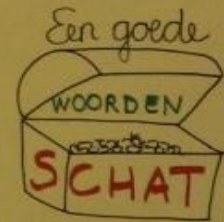 Een goede
WOORDEN
SCHAT